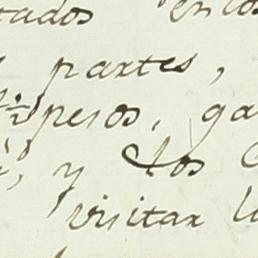 tados en los
partes,
pesos, ga
y los
visitar l